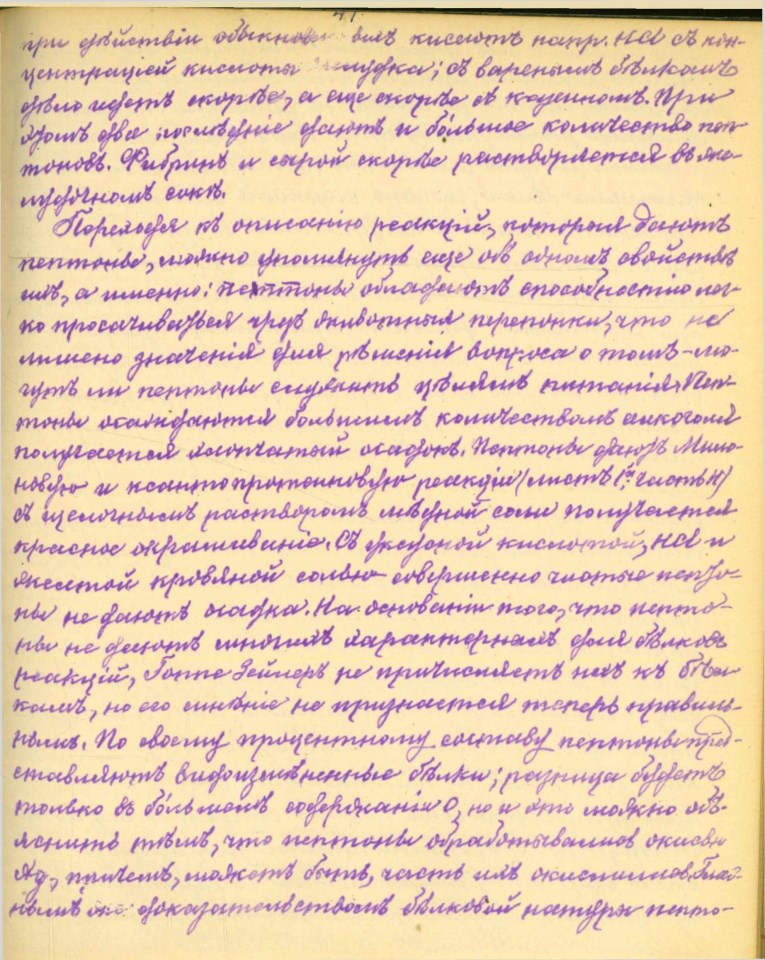 41
при дѣйствіи обыкнов вал кислотъ напр. HCl съ кон-
центраціей кислоты желудка; съ варенымъ бѣлкомъ
дѣло идетъ скорѣе, а еще скорѣе съ казеиномъ. При
этомъ два послѣдніе даютъ и большое количество пеп-
тоновъ. Фибринъ и сырой скорѣе растворяется въ же-
лудочномъ сокѣ.
Переходя къ описанію реакцій, которыя даютъ
пептоны, можно упомянуть еще объ одномъ свойствѣ
ихъ, а именно: пептоны обладаютъ способностію лег-
ко просачиваться чрезъ животныя перепонки, что не
лишено значенія для рѣшенія вопроса о томъ-мо-
гутъ ли пептоны служить цѣлямъ питанія. Пеп-
тоны осаждаются большимъ количествомъ алкоголя
получается хлопчатый осадокъ. Пептоны даютъ Милло-
новую и ксантопротеиновую реакціи (листъ 1ый часть II)
съ щелочнымъ растворомъ мѣдной соли получается
красное окрашиваніе. Съ уксусной кислотой, HCl и
желтой кровяной солью совершенно чистые пепто-
ны не даютъ осадка. На основаніи того, что пепто-
ны не даютъ многихъ характерныхъ для бѣлковъ
реакцій, Гоппе Зейлеръ не причисляетъ ихъ къ бѣл-
камъ, но его мнѣніе не признается теперь правиль-
нымъ. По своему процентному составу пептоны пред-
ставляютъ видоизмѣненные бѣлки; разница будетъ
только въ большемъ содержаніи O, но и это можно объ-
яснить тѣмъ, что пептоны обрабатывались окисью
Ag, причемъ, можетъ быть, часть ихъ окислилась. Глав-
нымъ же доказательствомъ бѣлковой натуры пепто-